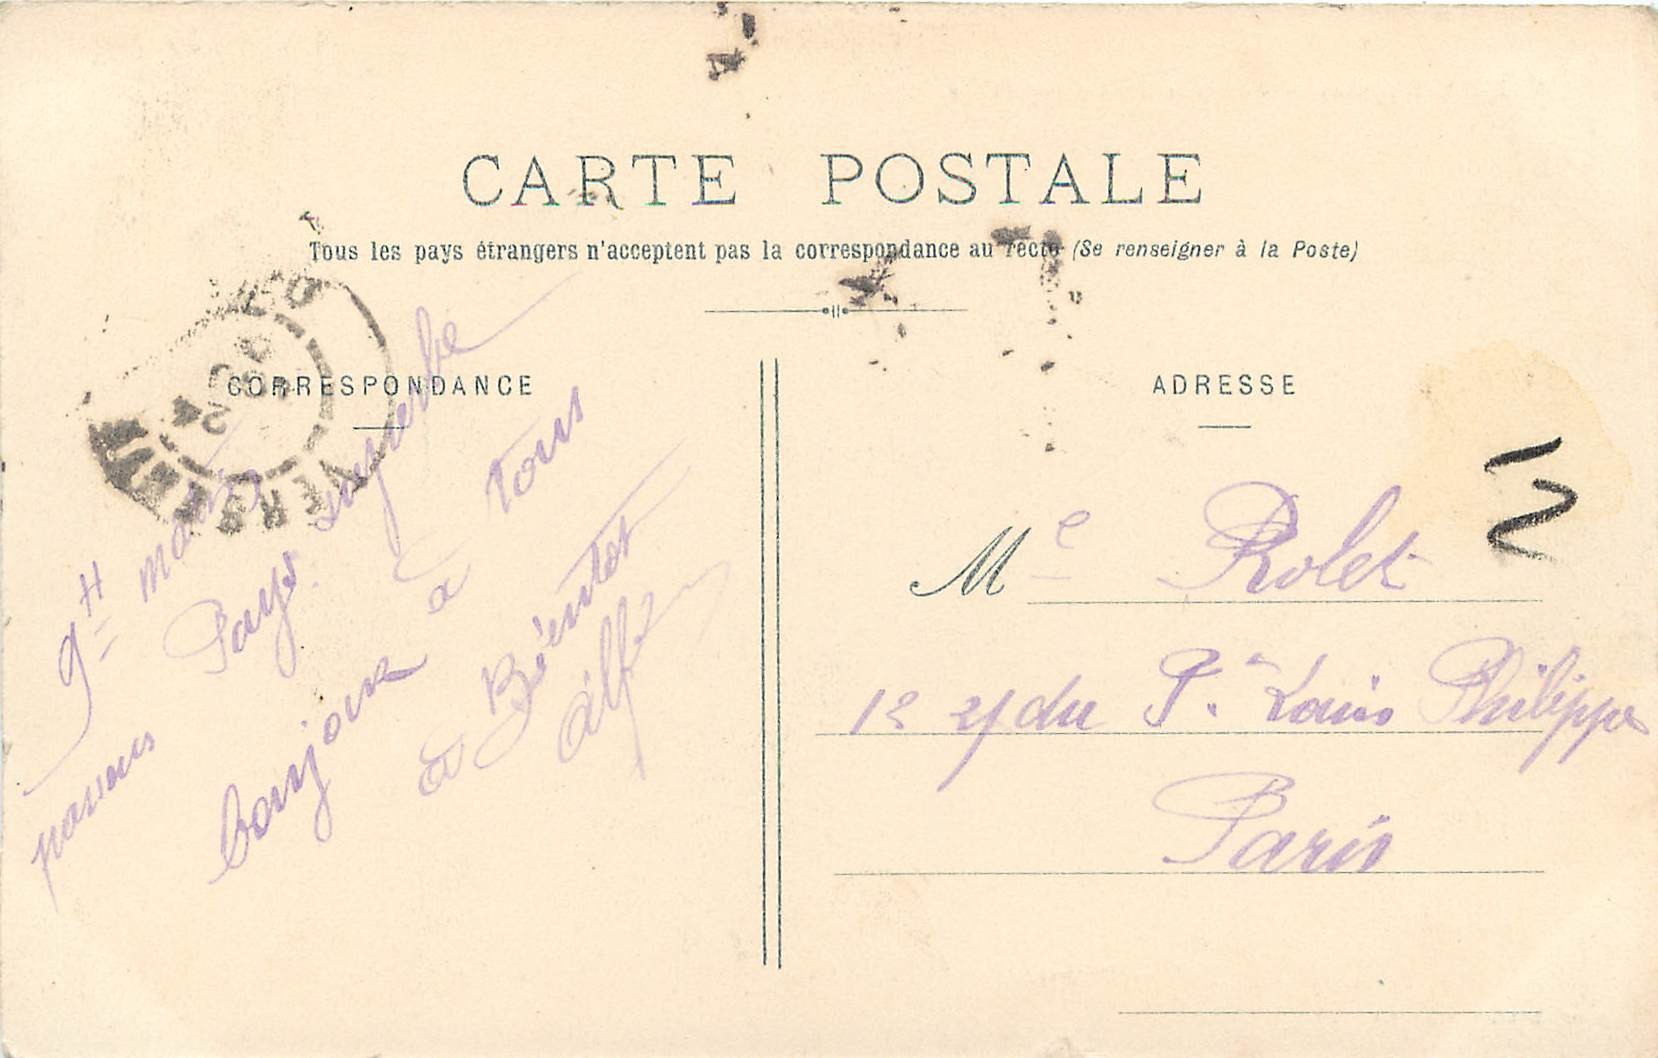 CARTE POSTALE
Tous les pays étrangers n'acceptent pas la correspondance au recto (Se renseigner à la Poste)
CORRESPONDANCE
9H matin
passons
Pays superbe
bonjour à tous
à Bientot
Alf
ADRESSE
Me Rolet
12 du Pt Louis Philippe
Paris
12